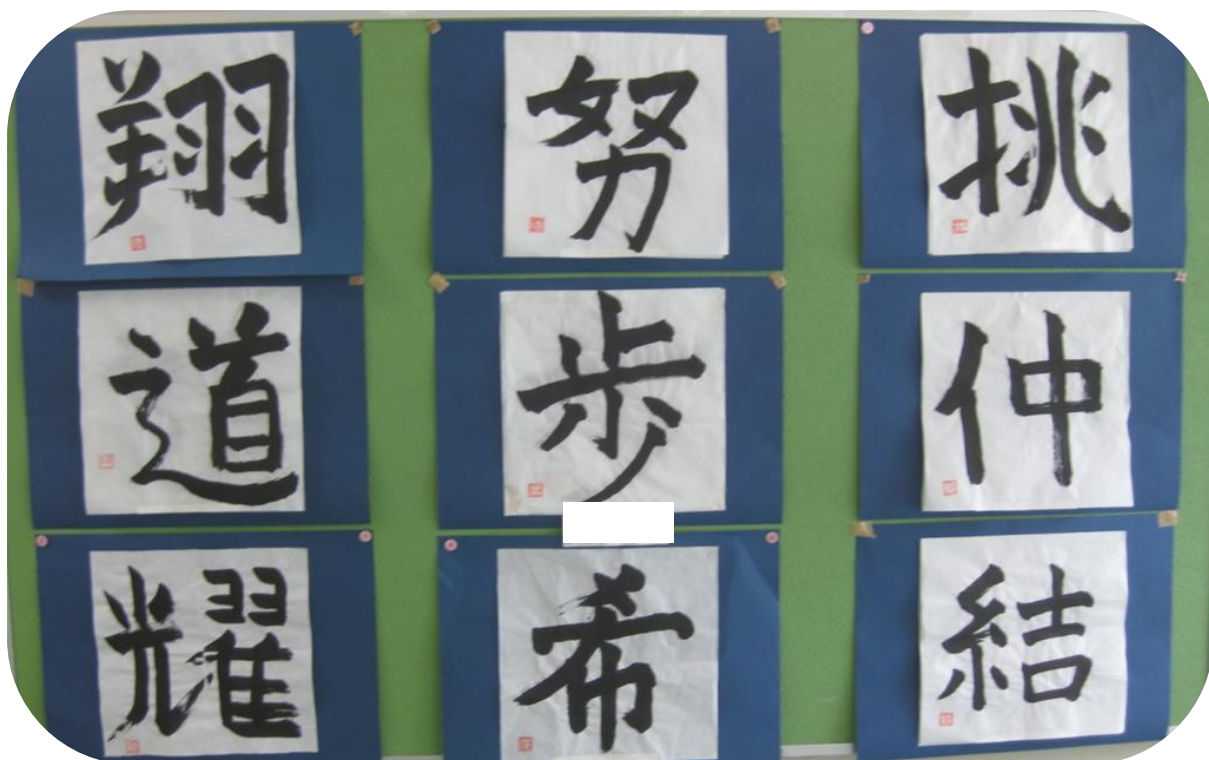 翔 努 挑
道 歩 仲
耀 希 結